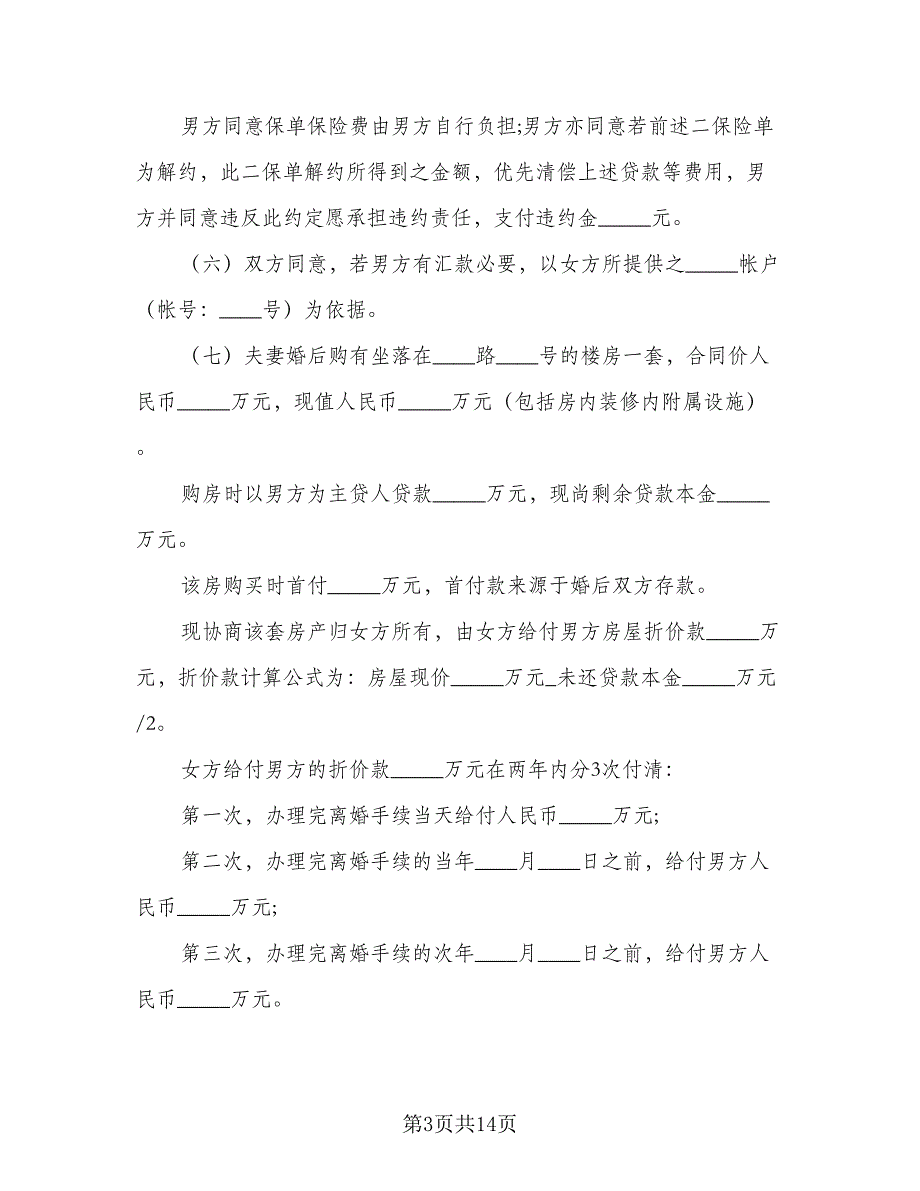 男方同意保单保险费由男方自行负担;男方亦同意若前述二保险单
为解约，此二保单解约所得到之金额，优先清偿上述贷款等费用，男
方并同意违反此约定愿承担违约责任，支付违约金_____元。
（六）双方同意，若男方有汇款必要，以女方所提供之_____帐户
（帐号：____号）为依据。
（七）夫妻婚后购有坐落在____路____号的楼房一套，合同价人
民币_____万元，现值人民币_____万元（包括房内装修内附属设施）
。
购房时以男方为主贷人贷款_____万元，现尚剩余贷款本金_____
万元。
该房购买时首付_____万元，首付款来源于婚后双方存款。
现协商该套房产归女方所有，由女方给付男方房屋折价款_____万
元，折价款计算公式为：房屋现价_____万元_未还贷款本金_____万元
/2。
女方给付男方的折价款_____万元在两年内分3次付清：
第一次，办理完离婚手续当天给付人民币_____万元;
第二次，办理完离婚手续的当年____月____日之前，给付男方人
民币_____万元;
第三次，办理完离婚手续的次年____月____日之前，给付男方人
民币_____万元。
第3页共14页